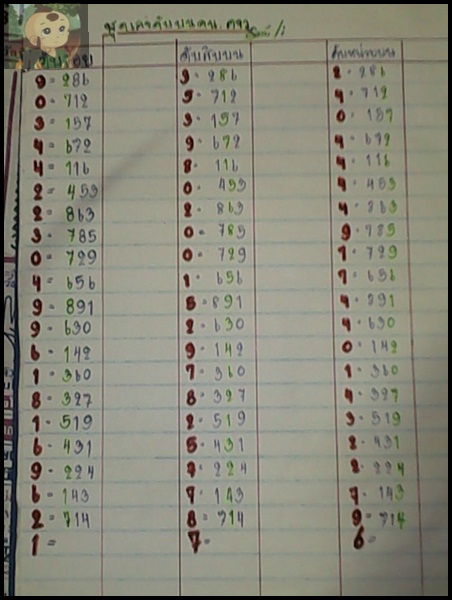 ดับร้อย ดับสิบบน ดับหน่วยบน
9 = 286 3 = 286 2 = 286
0 = 712 5 = 712 4 = 712
3 = 157 3 = 157 0 = 157
4 = 672 9 = 672 4 = 672
4 = 116 8 = 116 4 = 116
2 = 453 0 = 453 4 = 453
2 = 863 2 = 863 4 = 863
3 = 785 0 = 785 9 = 785
0 = 729 0 = 729 1 = 729
4 = 656 1 = 656 7 = 656
9 = 891 5 = 891 4 = 891
9 = 630 2 = 630 4 = 630
6 = 142 9 = 142 0 = 142
1 = 360 7 = 360 1 = 360
8 = 327 8 = 327 4 = 327
1 = 519 2 = 519 3 = 519
6 = 431 5 = 431 2 = 431
9 = 224 = 224 2 = 224
6 = 143 7 = 143 7 = 143
2 = 714 8 = 714 9 = 714
1 = 7 = 6 =